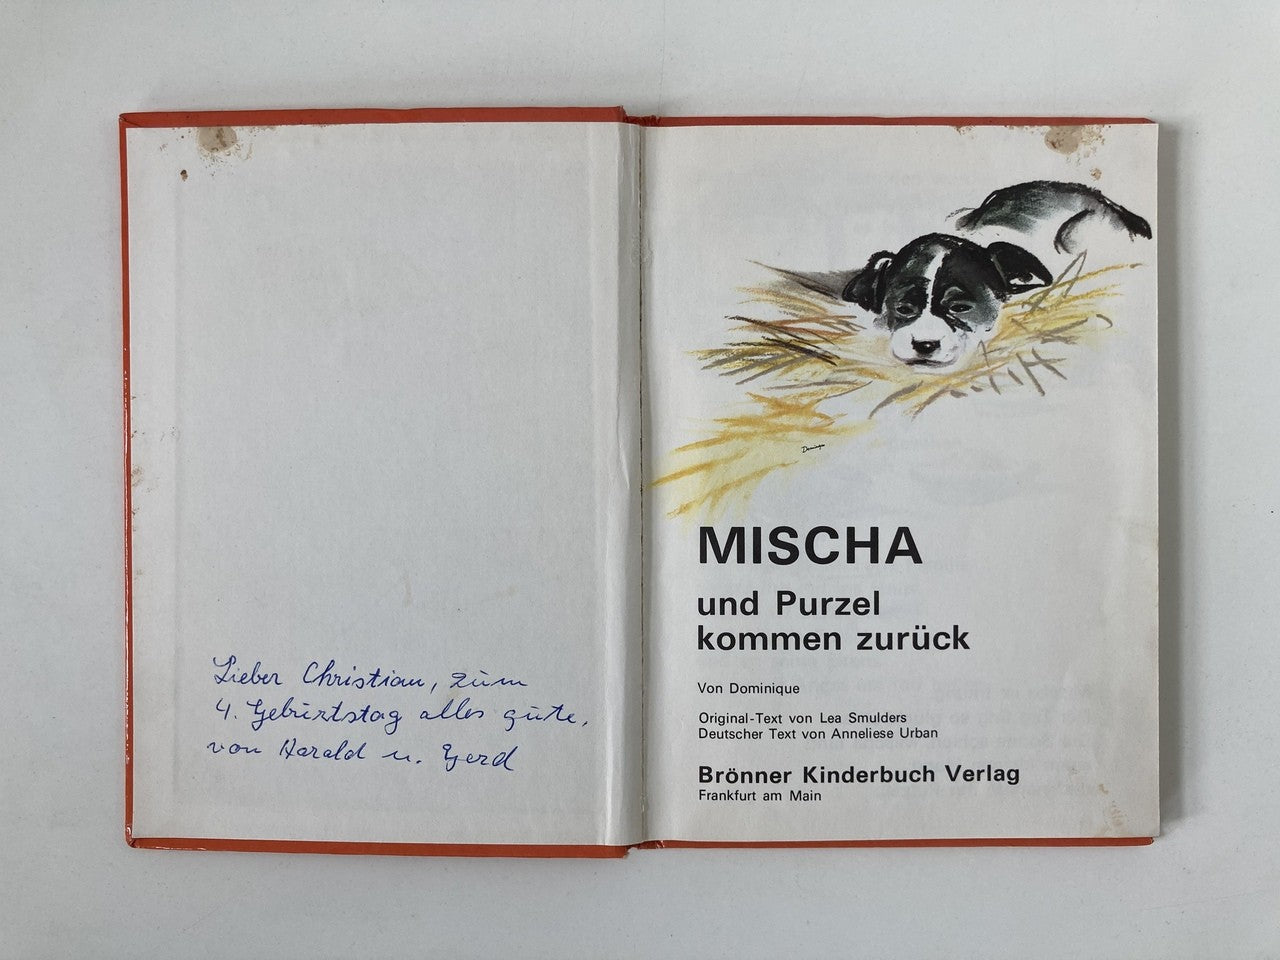 Lieber Christian, zum
4. Geburtstag alles gute,
von Harald u. Gerd
Dominique
MISCHA
und Purzel
kommen zurück
Von Dominique
Original-Text von Lea Smulders
Deutscher Text von Anneliese Urban
Brönner Kinderbuch Verlag
Frankfurt am Main